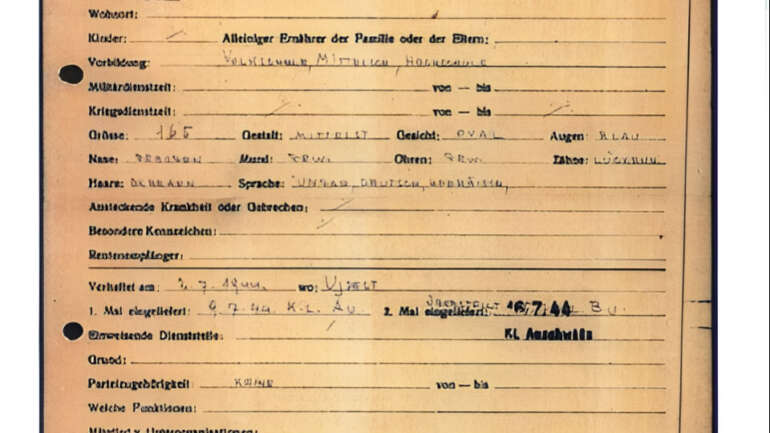 Wohnort:
Kinder: Alleiniger Ernährer der Familie oder der Eltern:
Vorbildung: VOLKSSCHULE, MITTELSCH, HOCHSCHULE
Militärdienstzeit: von — bis
Kriegsdienstzeit: von — bis
Grösse: 165 Gestalt: MITTELST Gesicht: OVAL Augen: BLAU
Nase: Mund: Ohren: Zähne:
Haare: Sprache: UNGAR, DEUTSCH,
Ansteckende Krankheit oder Gebrechen:
Besondere Kennzeichen:
Rentenempfänger:
Verhaftet am: 2.7.1944. wo:
1. Mal eingeliefert: 9.7.44. K.L. AU. 2. Mal eingeliefert: 16.7.44 BU.
KL Auschwitz
Einweisende Dienststelle:
Grund:
Parteizugehörigkeit: KEINE von — bis
Welche Funktionen:
Mitglied v. Unterorganisationen: